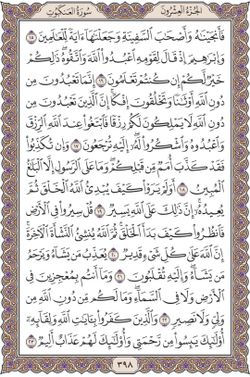 الجزء العشرون سورة العنكبوت
فَأَنجَيْنَٰهُ وَأَصْحَٰبَ ٱلسَّفِينَةِ وَجَعَلْنَٰهَآ ءَايَةً لِّلْعَٰلَمِينَ ١٥
وَإِبْرَٰهِيمَ إِذْ قَالَ لِقَوْمِهِ ٱعْبُدُوا۟ ٱللَّهَ وَٱتَّقُوهُ ذَٰلِكُمْ
خَيْرٌ لَّكُمْ إِن كُنتُمْ تَعْلَمُونَ ١٦ إِنَّمَا تَعْبُدُونَ مِن
دُونِ ٱللَّهِ أَوْثَٰنًا وَتَخْلُقُونَ إِفْكًا إِنَّ ٱلَّذِينَ تَعْبُدُونَ مِن
دُونِ ٱللَّهِ لَا يَمْلِكُونَ لَكُمْ رِزْقًا فَٱبْتَغُوا۟ عِندَ ٱللَّهِ ٱلرِّزْقَ
وَٱعْبُدُوهُ وَٱشْكُرُوا۟ لَهُۥٓ إِلَيْهِ تُرْجَعُونَ ١٧ وَإِن تُكَذِّبُوا۟
فَقَدْ كَذَّبَ أُمَمٌ مِّن قَبْلِكُمْ وَمَا عَلَى ٱلرَّسُولِ إِلَّا ٱلْبَلَٰغُ
ٱلْمُبِينُ ١٨ أَوَلَمْ يَرَوْا۟ كَيْفَ يُبْدِئُ ٱللَّهُ ٱلْخَلْقَ ثُمَّ
يُعِيدُهُۥٓ إِنَّ ذَٰلِكَ عَلَى ٱللَّهِ يَسِيرٌ ١٩ قُلْ سِيرُوا۟ فِى ٱلْأَرْضِ
فَٱنظُرُوا۟ كَيْفَ بَدَأَ ٱلْخَلْقَ ثُمَّ ٱللَّهُ يُنشِئُ ٱلنَّشْأَةَ ٱلْءَاخِرَةَ
إِنَّ ٱللَّهَ عَلَىٰ كُلِّ شَىْءٍ قَدِيرٌ ٢٠ يُعَذِّبُ مَن يَشَآءُ وَيَرْحَمُ
مَن يَشَآءُ وَإِلَيْهِ تُقْلَبُونَ ٢١ وَمَآ أَنتُم بِمُعْجِزِينَ فِى
ٱلْأَرْضِ وَلَا فِى ٱلسَّمَآءِ وَمَا لَكُم مِّن دُونِ ٱللَّهِ مِن
وَلِىٍّ وَلَا نَصِيرٍ ٢٢ وَٱلَّذِينَ كَفَرُوا۟ بِـَٔايَٰتِ ٱللَّهِ وَلِقَآئِهِۦٓ
أُو۟لَٰٓئِكَ يَئِسُوا۟ مِن رَّحْمَتِى وَأُو۟لَٰٓئِكَ لَهُمْ عَذَابٌ أَلِيمٌ ٢٣
٣٩٨